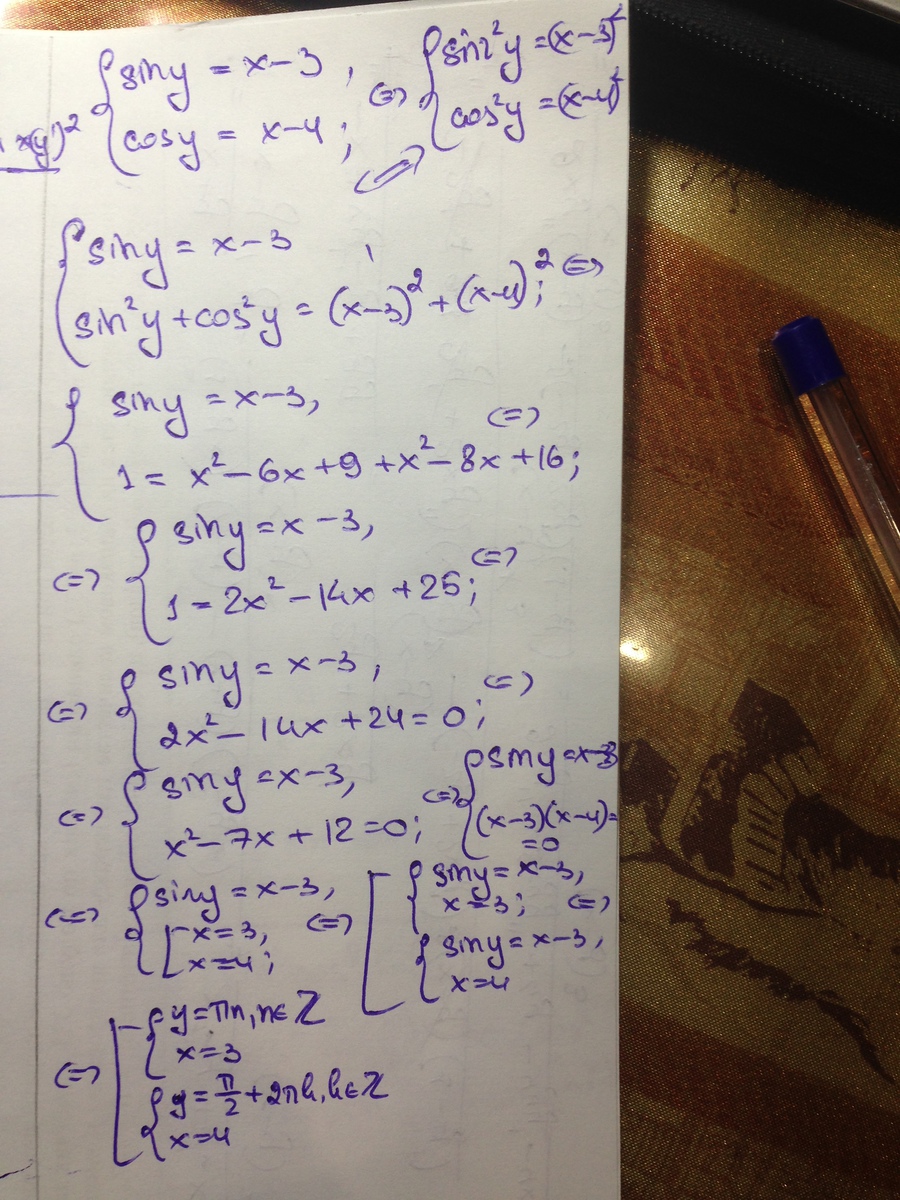 { sin y = x-3 , <=> { sin²y = (x-3)²
{ cos y = x-4 ; { cos²y = (x-4)²
<=>
{ sin y = x-3 ,
{ sin²y + cos²y = (x-3)² + (x-4)² ; <=>
{ sin y = x-3,
{ 1 = x² - 6x + 9 + x² - 8x + 16 ; <=>
<=> { sin y = x-3,
{ 1 = 2x² - 14x + 25 ; <=>
<=> { sin y = x-3 ,
{ 2x² - 14x + 24 = 0 ; <=>
<=> { sin y = x-3,
{ x² - 7x + 12 = 0 ;
<=> { sin y = x-3
{ (x-3)(x-4) =
= 0
<=> { sin y = x-3,
{ [ x = 3,
[ x = 4;
<=> [ { sin y = x-3,
{ x = 3; <=>
{ sin y = x-3,
{ x = 4
<=> [ { y = πn, n ∈ Z
{ x = 3
{ y = π/2 + 2πk, k ∈ Z
{ x = 4